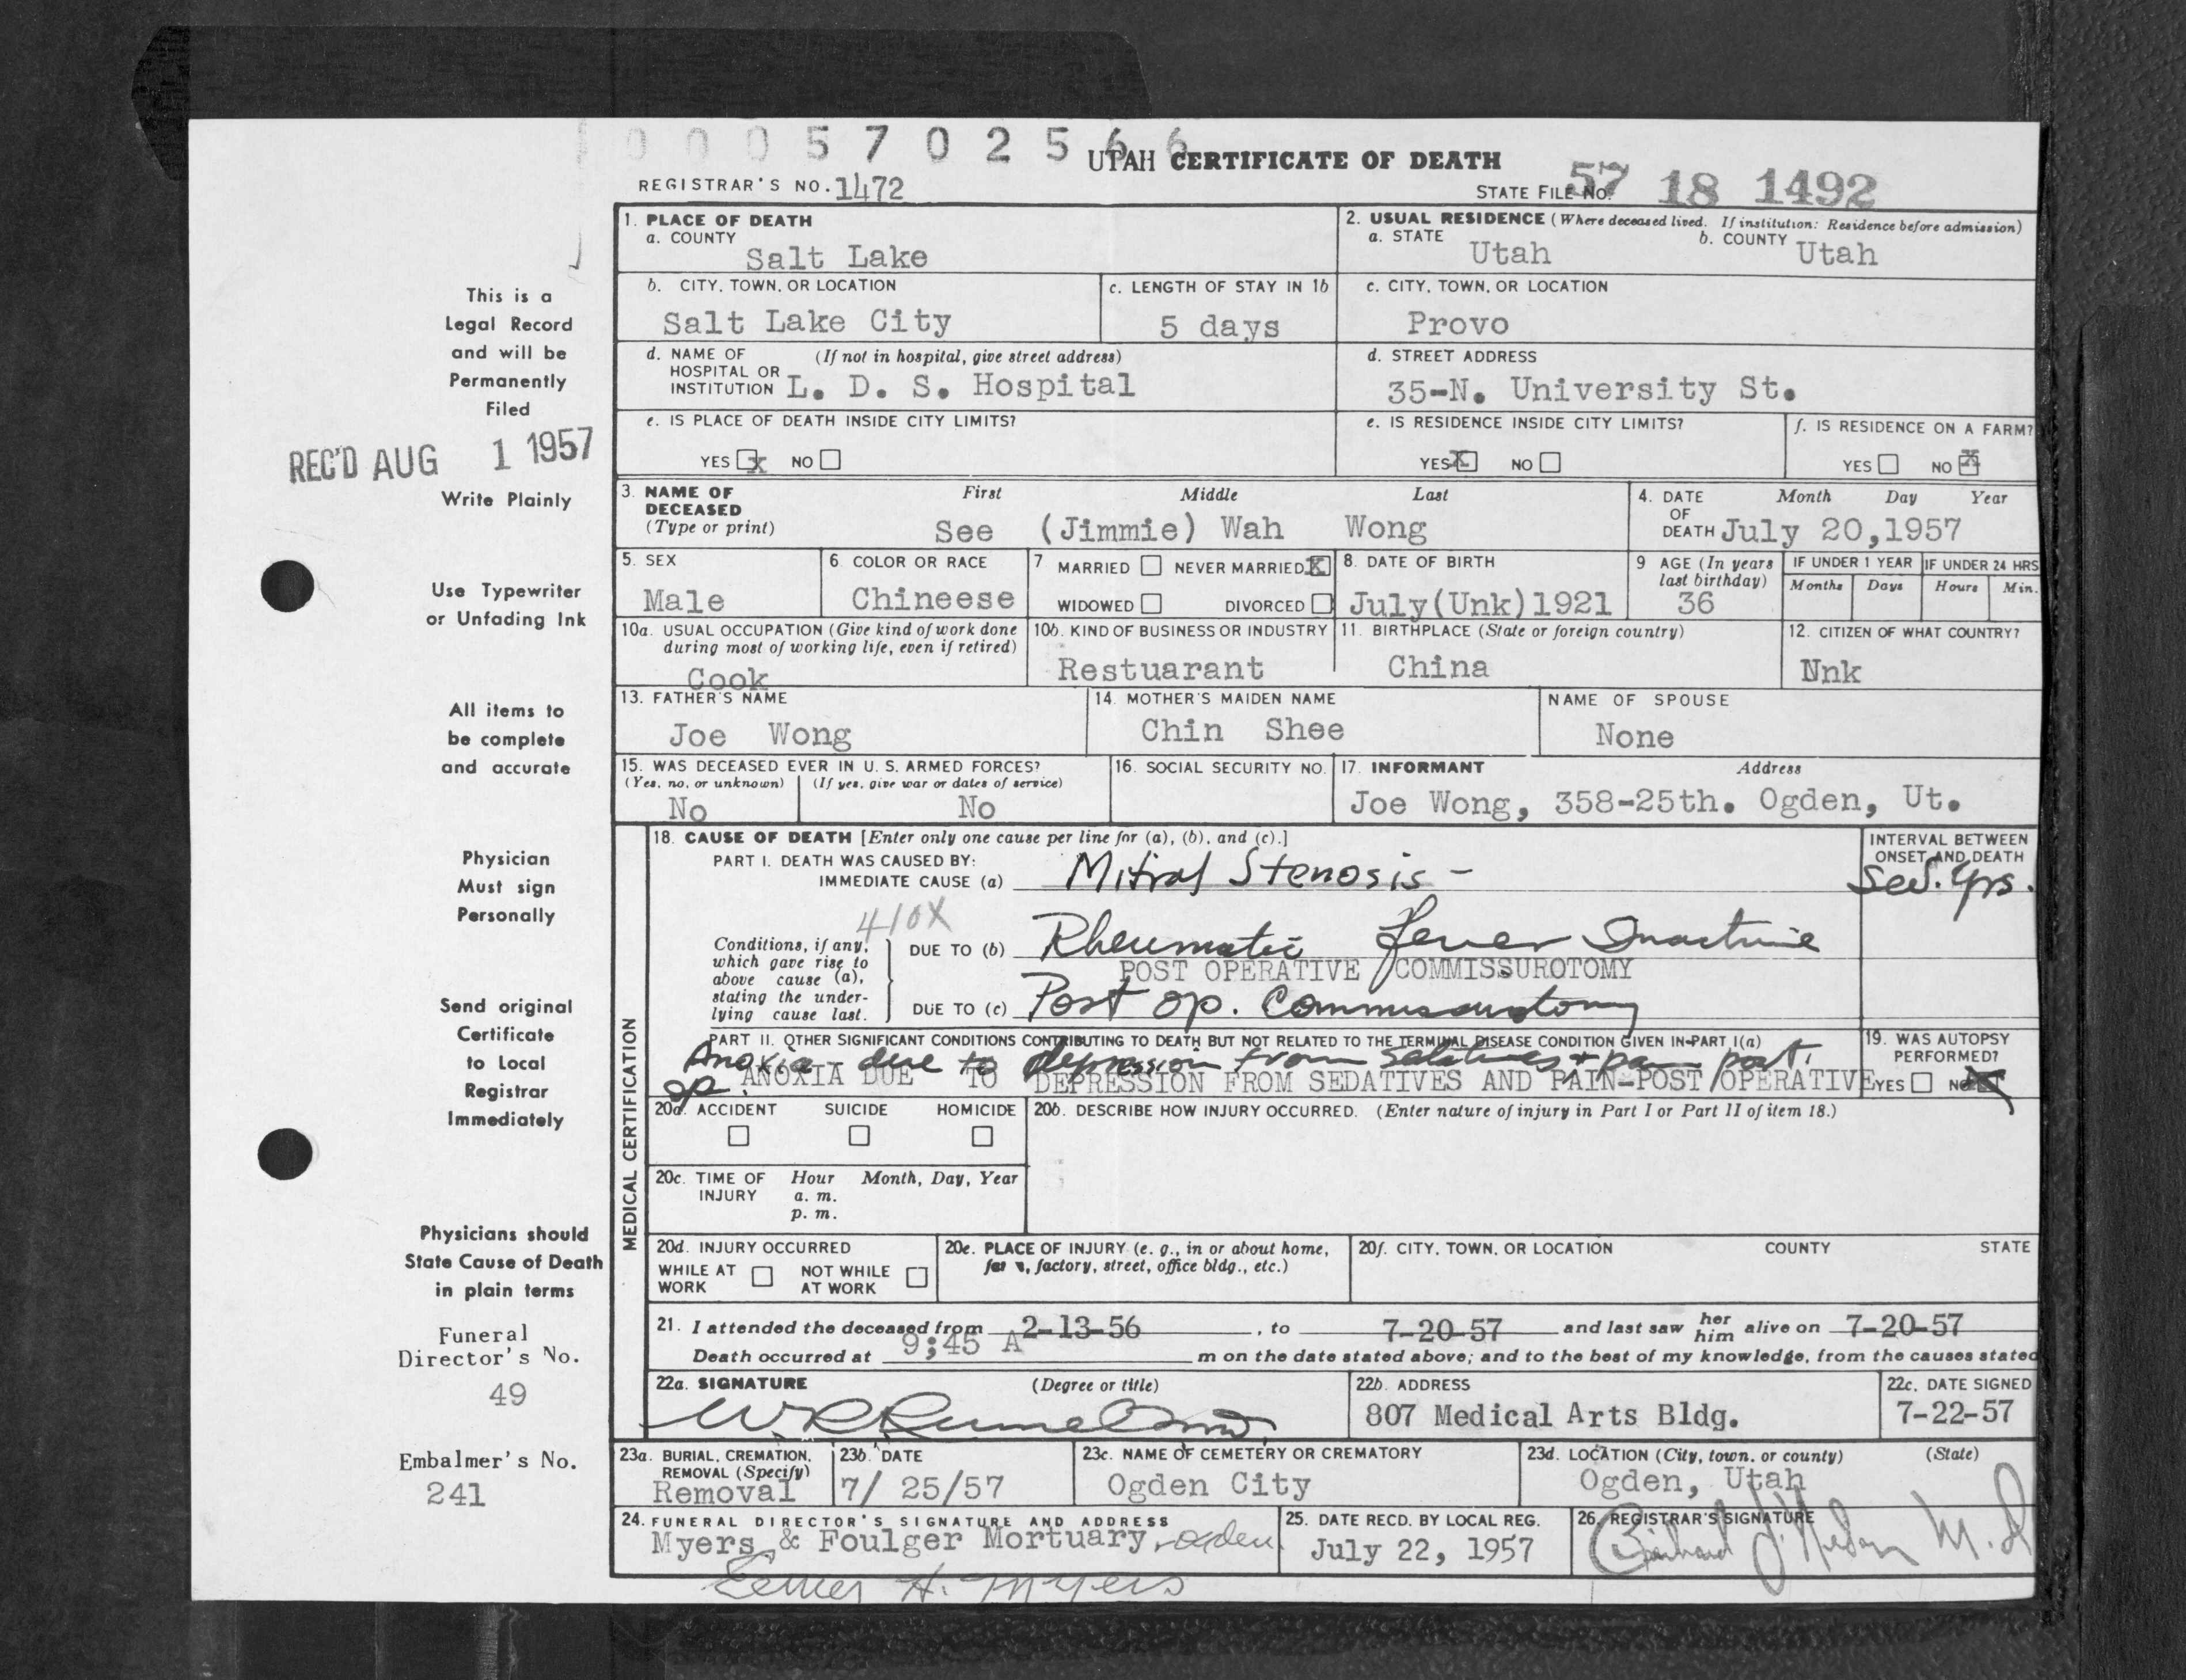 0 0 0 5 7 0 2 5 6 6
UTAH CERTIFICATE OF DEATH
REGISTRAR'S NO. 1472
STATE FILE NO. 57 18 1492
1. PLACE OF DEATH
a. COUNTY
Salt Lake
2. USUAL RESIDENCE (Where deceased lived. If institution: Residence before admission)
a. STATE Utah b. COUNTY Utah
b. CITY, TOWN, OR LOCATION
Salt Lake City
c. LENGTH OF STAY IN 1b
5 days
c. CITY, TOWN, OR LOCATION
Provo
d. NAME OF HOSPITAL OR INSTITUTION (If not in hospital, give street address)
L. D. S. Hospital
d. STREET ADDRESS
35-N. University St.
e. IS PLACE OF DEATH INSIDE CITY LIMITS?
YES x NO
e. IS RESIDENCE INSIDE CITY LIMITS?
YES X NO
f. IS RESIDENCE ON A FARM?
YES NO X
3. NAME OF DECEASED (Type or print)
First Middle Last
See (Jimmie) Wah Wong
4. DATE OF DEATH Month Day Year
July 20,1957
5. SEX
Male
6. COLOR OR RACE
Chineese
7 MARRIED NEVER MARRIED X
WIDOWED DIVORCED
8. DATE OF BIRTH
July(Unk)1921
9 AGE (In years last birthday)
36
IF UNDER 1 YEAR
Months Days
IF UNDER 24 HRS
Hours Min.
10a. USUAL OCCUPATION (Give kind of work done during most of working life, even if retired)
Cook
10b. KIND OF BUSINESS OR INDUSTRY
Restuarant
11. BIRTHPLACE (State or foreign country)
China
12. CITIZEN OF WHAT COUNTRY?
Nnk
13. FATHER'S NAME
Joe Wong
14. MOTHER'S MAIDEN NAME
Chin Shee
NAME OF SPOUSE
None
15. WAS DECEASED EVER IN U. S. ARMED FORCES?
(Yes, no, or unknown) (If yes, give war or dates of service)
No No
16. SOCIAL SECURITY NO.
17. INFORMANT Address
Joe Wong, 358-25th. Ogden, Ut.
MEDICAL CERTIFICATION
18. CAUSE OF DEATH [Enter only one cause per line for (a), (b), and (c).]
PART I. DEATH WAS CAUSED BY:
IMMEDIATE CAUSE (a) Mitral Stenosis -
INTERVAL BETWEEN ONSET AND DEATH
Sev. yrs.
410X
Conditions, if any, which gave rise to above cause (a), stating the underlying cause last.
DUE TO (b) Rheumatic fever Inactive
POST OPERATIVE COMMISSUROTOMY
DUE TO (c) Post op. Commissurotomy
PART II. OTHER SIGNIFICANT CONDITIONS CONTRIBUTING TO DEATH BUT NOT RELATED TO THE TERMINAL DISEASE CONDITION GIVEN IN PART I(a)
Anoxia due to depression from sedatives + pain post.
op.
ANOXIA DUE TO DEPRESSION FROM SEDATIVES AND PAIN-POST OPERATIVE
19. WAS AUTOPSY PERFORMED?
YES NO X
20a. ACCIDENT SUICIDE HOMICIDE
20b. DESCRIBE HOW INJURY OCCURRED. (Enter nature of injury in Part I or Part II of item 18.)
20c. TIME OF INJURY Hour Month, Day, Year
a. m.
p. m.
20d. INJURY OCCURRED
WHILE AT WORK NOT WHILE AT WORK
20e. PLACE OF INJURY (e. g., in or about home, factory, street, office bldg., etc.)
20f. CITY, TOWN, OR LOCATION COUNTY STATE
21. I attended the deceased from 2-13-56, to 7-20-57 and last saw her him alive on 7-20-57
Death occurred at 9;45 A m on the date stated above; and to the best of my knowledge, from the causes stated
22a. SIGNATURE (Degree or title)
22b. ADDRESS
807 Medical Arts Bldg.
22c. DATE SIGNED
7-22-57
23a. BURIAL, CREMATION, REMOVAL (Specify)
Removal
23b. DATE
7/ 25/57
23c. NAME OF CEMETERY OR CREMATORY
Ogden City
23d. LOCATION (City, town, or county) (State)
Ogden, Utah
24. FUNERAL DIRECTOR'S SIGNATURE AND ADDRESS
Myers & Foulger Mortuary, Ogden
H. Myers
25. DATE RECD. BY LOCAL REG.
July 22, 1957
26. REGISTRAR'S SIGNATURE
M. D
This is a
Legal Record
and will be
Permanently
Filed
REC'D AUG 1 1957
Write Plainly
Use Typewriter
or Unfading Ink
All items to
be complete
and accurate
Physician
Must sign
Personally
Send original
Certificate
to Local
Registrar
Immediately
Physicians should
State Cause of Death
in plain terms
Funeral
Director's No.
49
Embalmer's No.
241